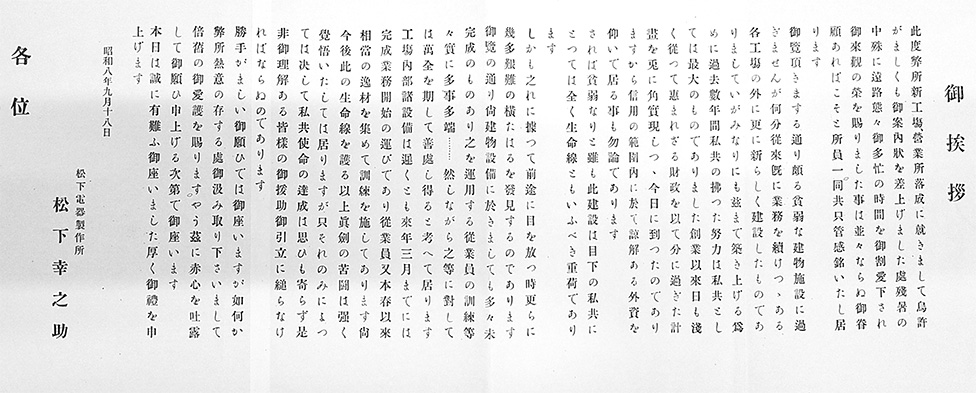 御挨拶
此度弊所新工場営業所落成に就きまして烏許
がましくも御案內狀を差上げました處殘暑の
中殊に遠路態々御多忙の時間を御割愛下され
御來觀の榮を賜りました事は並々ならぬ御眷
顧あればこそと所員一同共只管感銘いたし居
ります
御覽頂きまする通り頗る貧弱な建物施設に過
ぎませんが何分從來旣に業務を續けつゝある
各工場の外に更に新らしく建設したものであ
りましていがみなりにも玆まで築き上げる爲
めに過去數年間私共の拂つた努力は私共とし
ては最大のものであります創業以來日も淺
く從つて惠まれざる財政を以て分に過ぎた計
畫を兎に角實現しつゝ今日に到つたのであり
ますから信用の範圍內に於て諒解ある外資を
仰いで居る事も勿論であります
されば貧弱なりと雖も此建設は目下の私共に
とつては全く生命線ともいふべき重荷であり
ます
しかも之れに據つて前途に目を放つ時更らに
幾多艱難の橫たはるを發見するのであります
御覽の通り尙建物設備に於きましても多々未
完成のものあり之を運用する從業員の訓練等
々實に多事多端……然しながら之等に對して
は萬全を期して善處し得ると考へて居ります
工場內部諸設備は遲くとも來年三月までには
完成業務開始の運びであり從業員又本春以來
相當の逸材を集めて訓練を施してあります尙
今後此の生命線を護る以上眞劍の苦鬪は强く
覺悟いたしては居りますが只それのみによつ
ては決して私共使命の達成は思ひも寄らず是
非御理解ある皆樣の御援助御引立に縋らなけ
ればならぬのであります
勝手がましい御願ひでは御座いますが如何か
弊所熱意の存する處御汲み取り下さいまして
倍舊の御愛護を賜りますやう玆に赤心を吐露
して御願ひ申上げる次第で御座います
本日は誠に有難ふ御座いました厚く御禮を申
上げます
昭和八年九月十八日
松下電器製作所
松下幸之助
各位